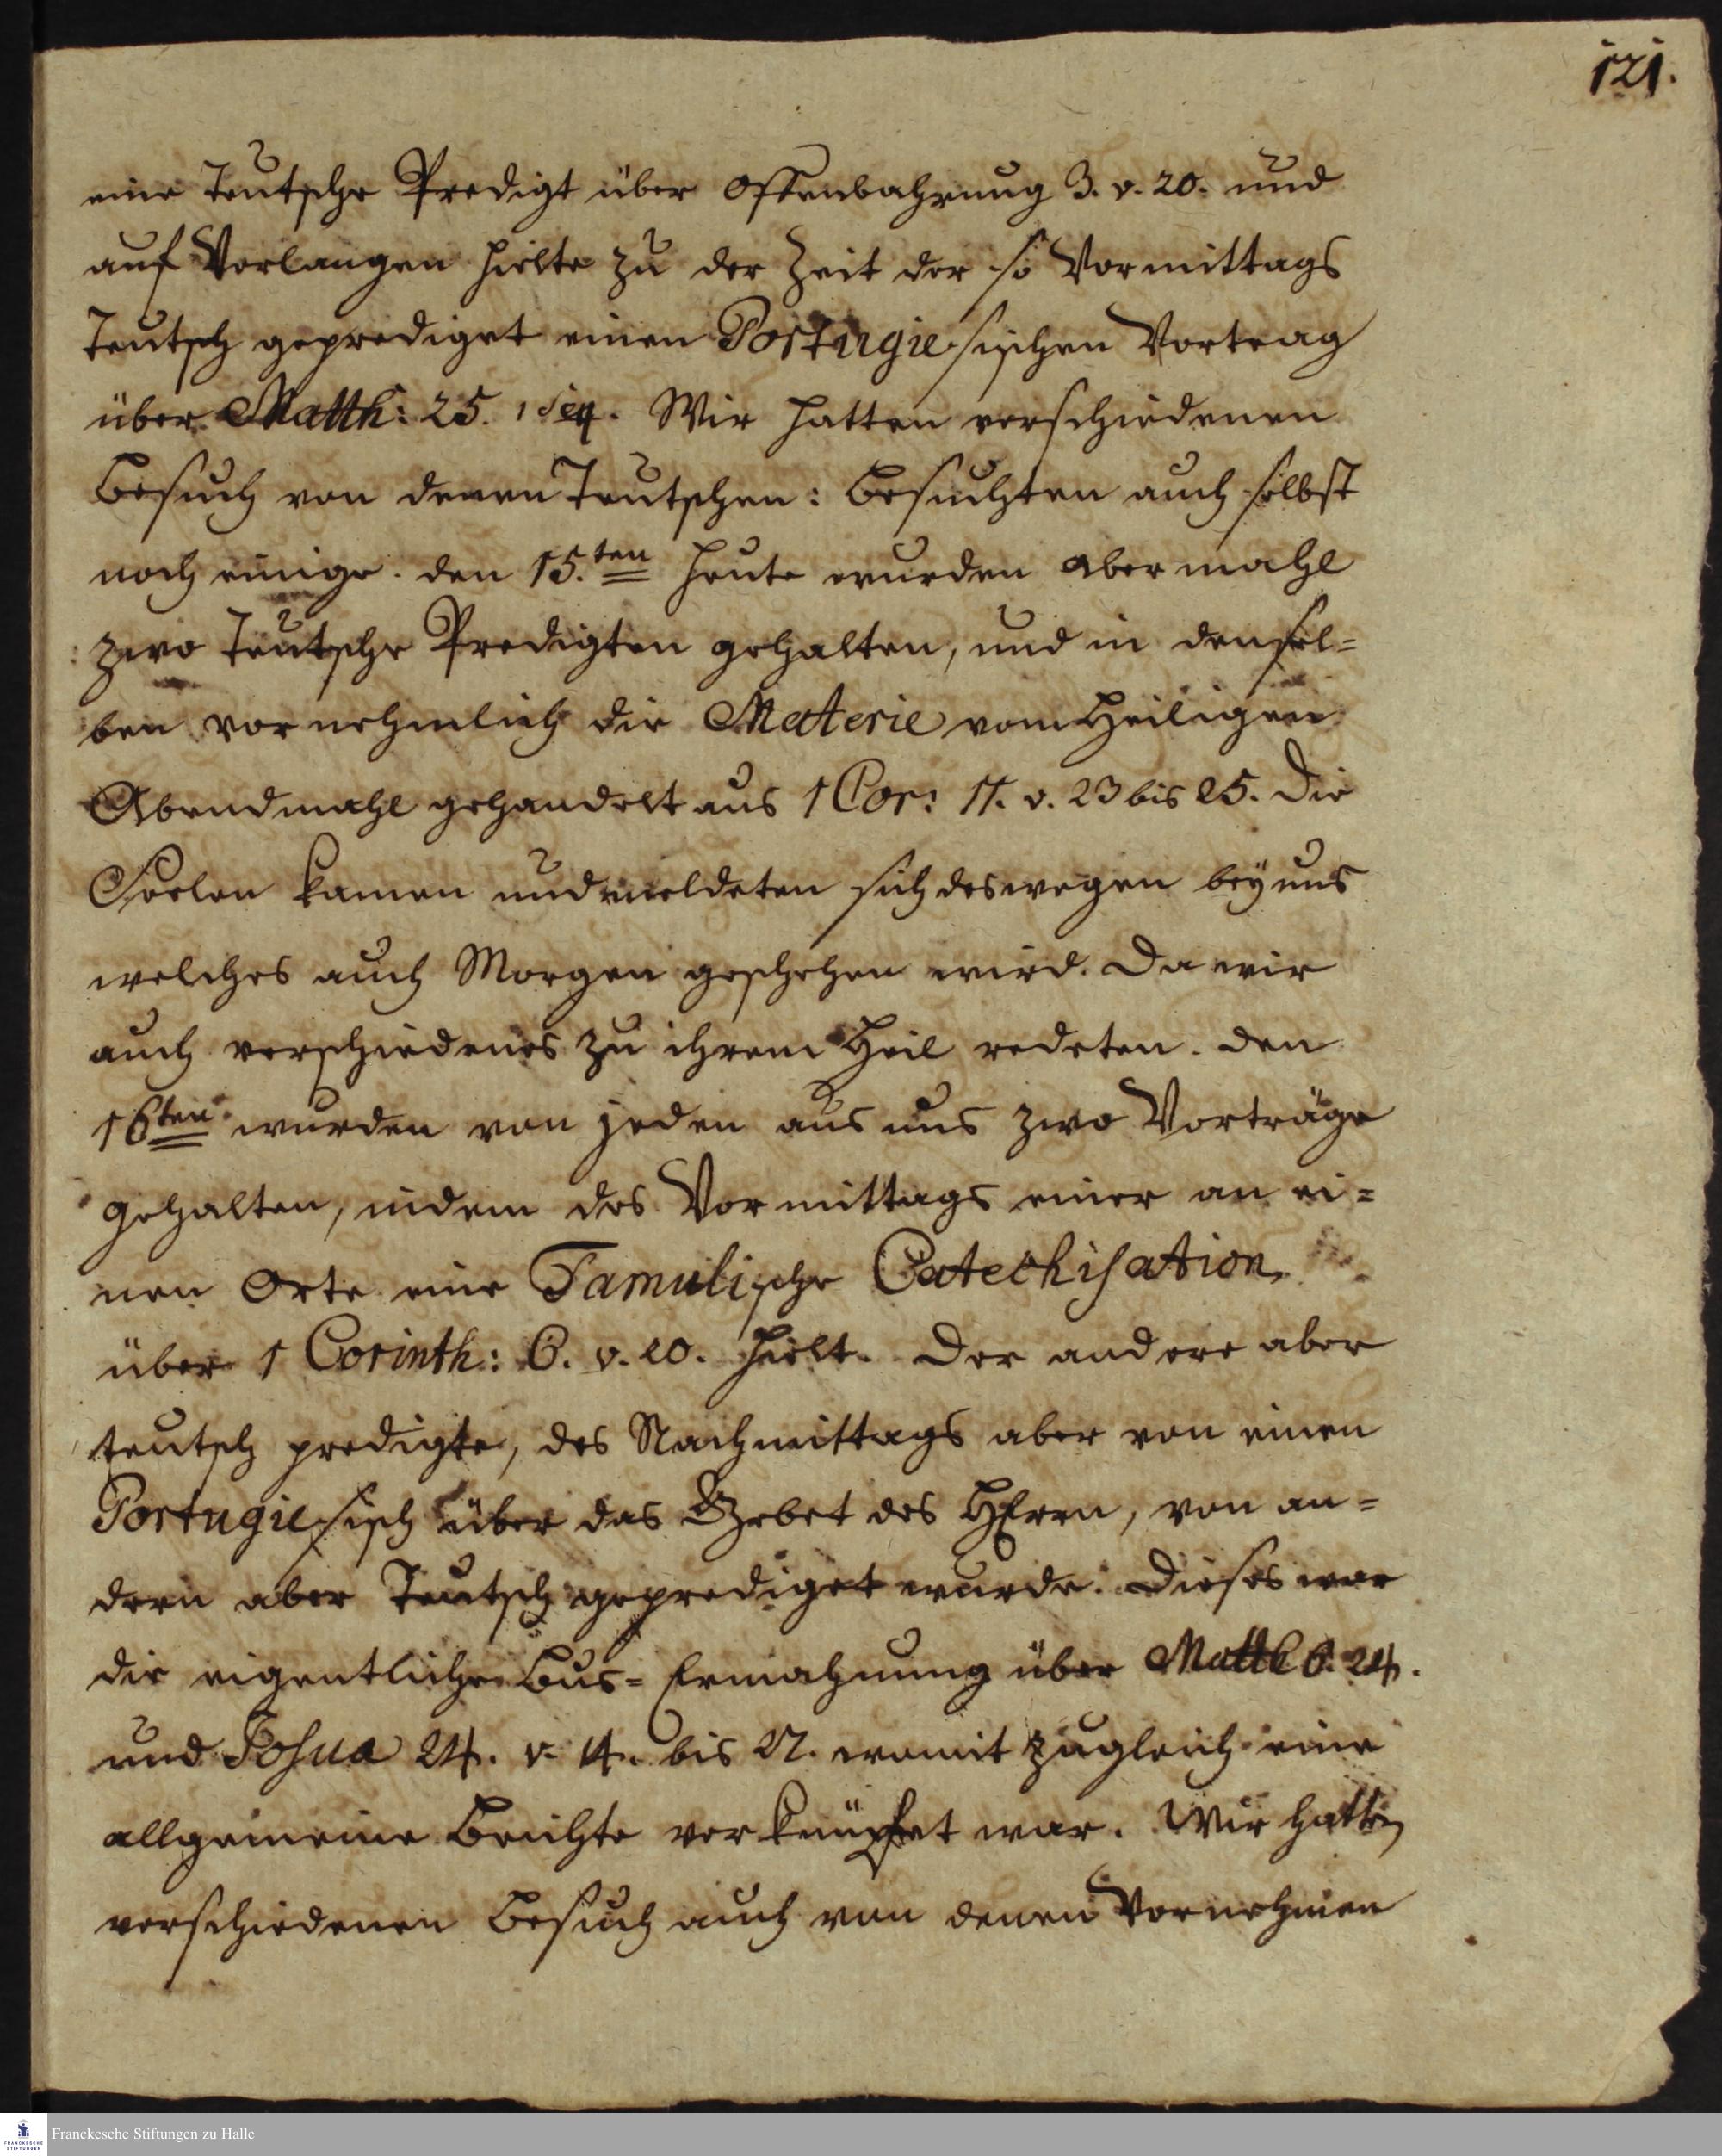 121.
eine Teutsche Predigt über Offenbahrung 3. v. 20. und
auf Verlangen hielte zu der Zeit der so Vormittags
Teutsch geprediget einen Portugiesischen Vortrag
über Matth: 25. 1 seq. Wir hatten verschiedenen
Besuch von denen Teutschen: besuchten auch selbst
noch einige. den 15.ten heute wurden abermahl
zwo Teutsche Predigten gehalten, und in densel=
ben vornehmlich die Materie vom Heiligen
Abendmahl gehandelt aus 1 Cor: 11. v. 23 bis 25. Die
Seelen kamen und meldeten sich deswegen bey uns
welches auch Morgen geschehen wird. Da wir
auch verschiedenes zu ihrem Heil redeten. den
16ten wurden von jeden aus uns zwo Vorträge
gehalten, indem des Vormittags einer an ei=
nen Orte eine Tamulische Catechisation
über 1 Corinth: 6. v. 20. hielt. Der andere aber
teutsch predigte, des Nachmittags aber von einen
Portugiesisch über das Gebet des HErrn, von an=
dern aber Teutsch geprediget wurde. Dieses war
die eigentliche Bus=Ermahnung über Matth 6. 24.
und Josua 24. v. 14. bis 27. womit zugleich eine
allgemeine Beichte verknüpfet war. Wir hatten
verschiedenen Besuch auch von denen Vornehmen
Franckesche Stiftungen zu Halle